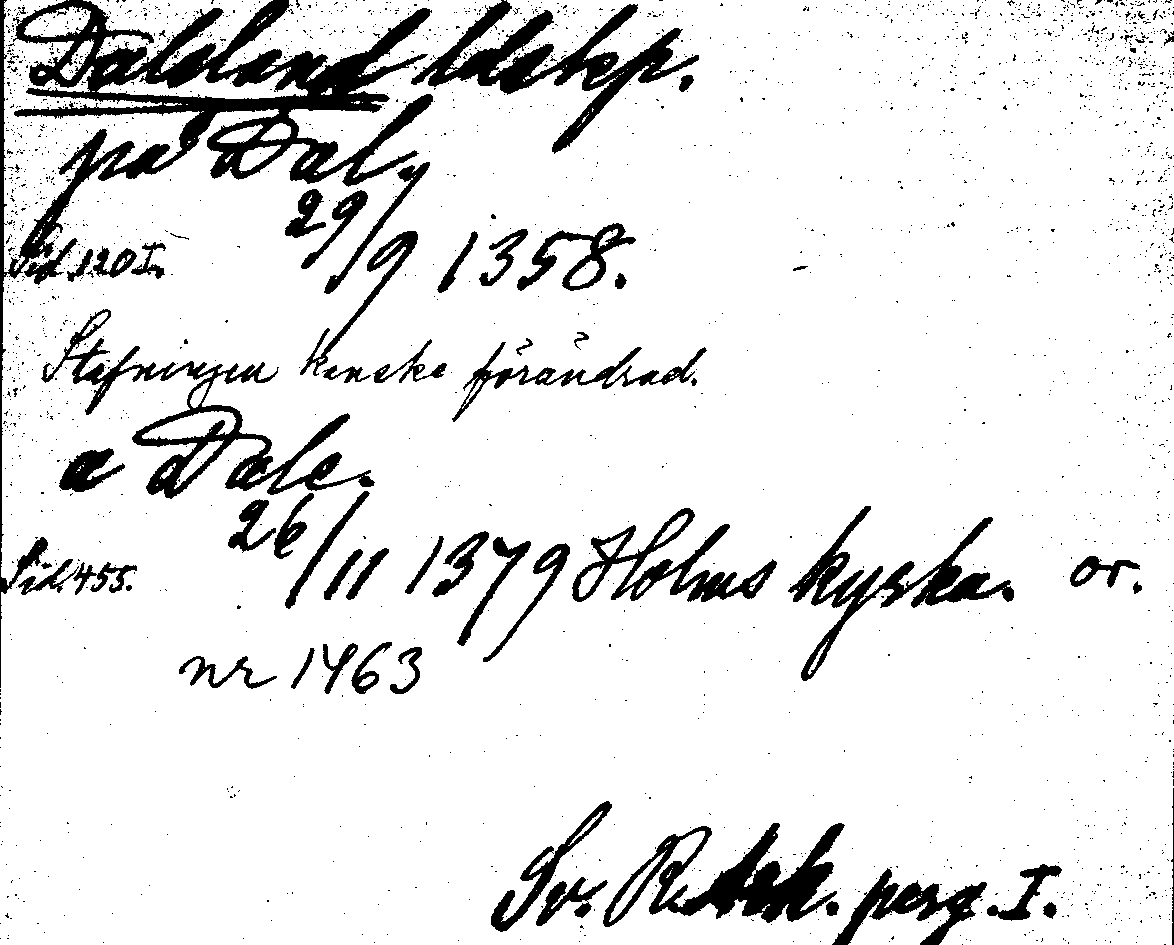 Dalsland ldskp.
på Dal.
29/9 1358.
Sid 120 I.
Stafningen kanske förändrad.
a Dale.
26/11 1379 Holms kyrka. or.
Sid. 455.
nr 1463
Sv. R. Ark. perg. I.